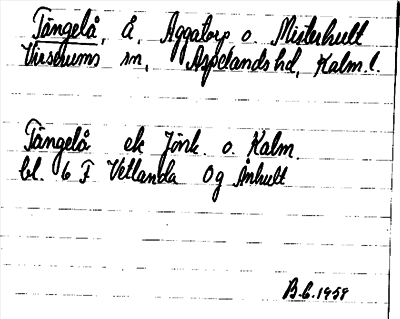 Tångelå, Å, Aggatorp o. Misterhult
Virserums sn, Aspelands hd, Kalm. l.
Tångelå ek Jönk. o. Kalm.
bl. 6 F Vetlanda Og
B.C. 1958